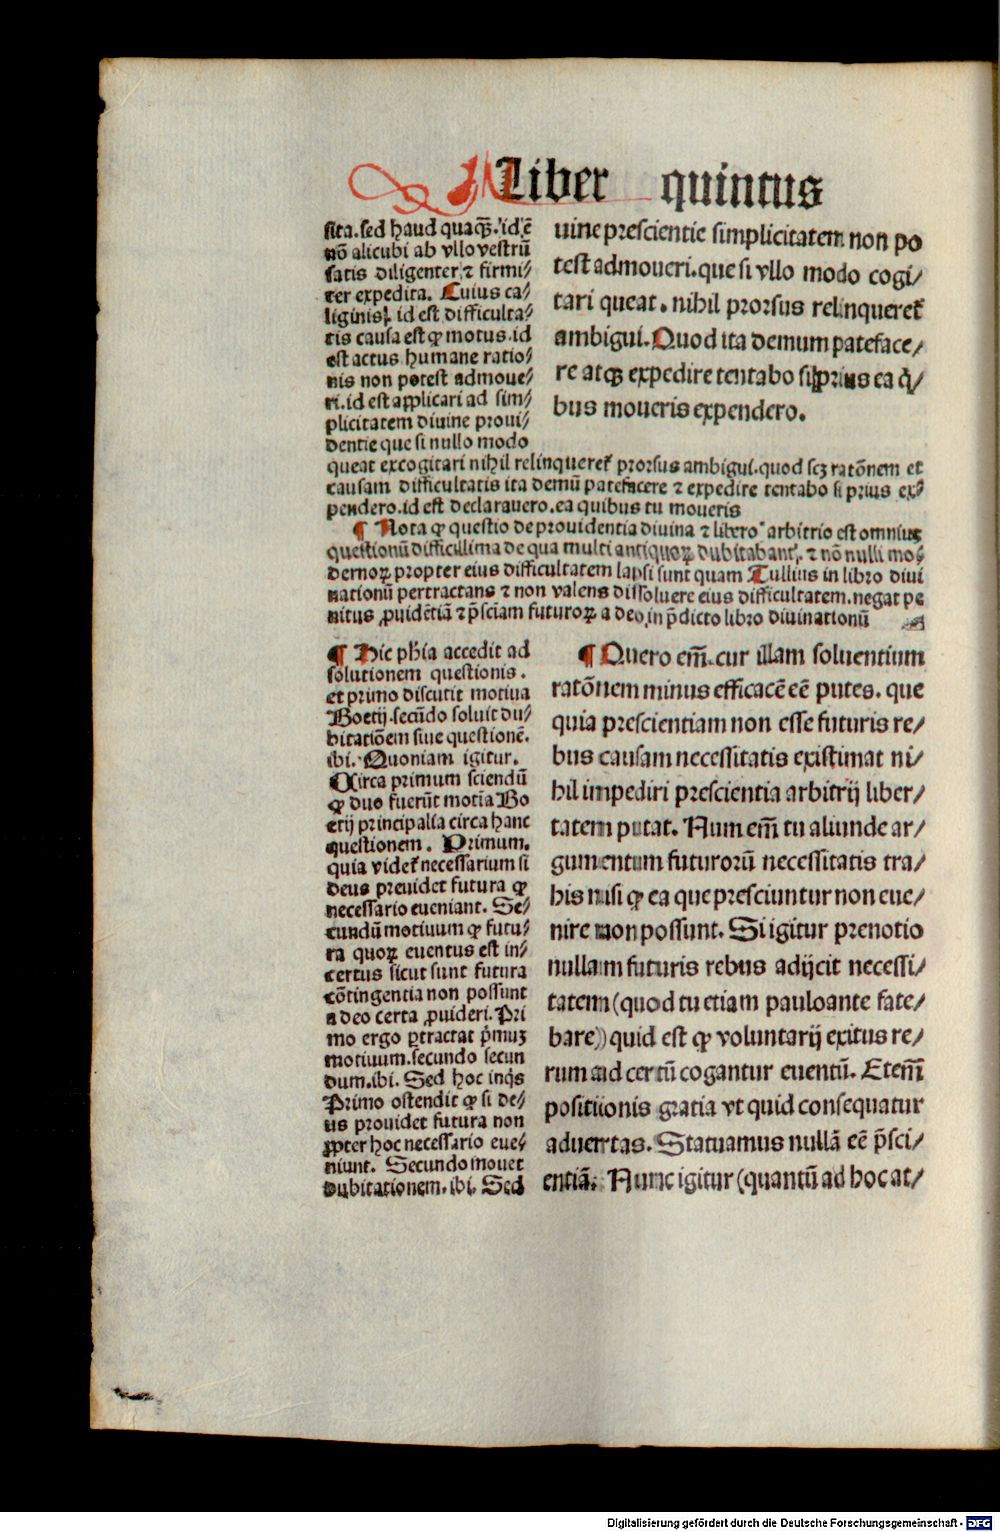 Liber quintus
sita. sed haud quaqꝫ. id ē
nō alicubi ab vllo vestrū
satis diligenter ⁊ firmi/
ter expedita. Cuius ca/
liginis. id est difficulta/
tis causa est ꝙ motus. id
est actus humane ratio/
nis non potest admoue/
ri. id est applicari ad sim/
plicitatem diuine proui/
dentie que si nullo modo
queat excogitari nihil relinqueret᷑ prorsus ambigui. quod scꝫ ratōnem et
causam difficultatis ita demū patefacere ⁊ expedire tentabo si prius ex/
pendero. id est declarauero. ea quibus tu moueris
uine prescientie simplicitatem non po
test admoueri. que si vllo modo cogi/
tari queat. nihil prorsus relinqueret᷑
ambigui. Quod ita demum pateface/
re atqꝫ expedire tentabo si prius ea q̄/
bus moueris expendero.
¶ Nota ꝙ questio de prouidentia diuina ⁊ libero arbitrio est omniuꝫ
questionū difficillima de qua multi antiquoꝝ dubitabant. ⁊ nō nulli mo/
dernoꝝ propter eius difficultatem lapsi sunt quam Tullius in libro diui
nationū pertractans ⁊ non valens dissoluere eius difficultatem. negat pe
nitus ꝓuidētiā ⁊ p̄sciam futuroꝝ a deo in p̄dicto libro diuinationū
¶ Hic ph̄ia accedit ad
solutionem questionis.
et primo discutit motiua
Boetij. secūdo soluit du/
bitatiōem siue questionē.
ibi. Quoniam igitur.
Circa primum sciendū
ꝙ duo fuerūt motīa Bo
etij principalia circa hanc
questionem. Primum.
quia videt᷑ necessarium si
deus preuidet futura ꝙ
necessario eueniant. Se/
cundū motiuum ꝙ futu/
ra quoꝝ euentus est in/
certus sicut sunt futura
cōtingentia non possunt
a deo certa ꝓuideri. Pri
mo ergo ꝑtractat p̄muꝫ
motiuum. secundo secun
dum. ibi. Sed hoc inq̄s
Primo ostendit ꝙ si de/
us prouidet futura non
ꝓpter hoc necessario eue/
niunt. Secundo mouet
dubitationem. ibi. Sed
¶ Quero em̄. cur illam soluentium
ratōnem minus efficacē eē putes. que
quia prescientiam non esse futuris re/
bus causam necessitatis existimat ni/
hil impediri prescientia arbitrij liber/
tatem putat. Num em̄ tu aliunde ar/
gumentum futurorū necessitatis tra/
his nisi ꝙ ea que presciuntur non eue/
nire non possunt. Si igitur prenotio
nullam futuris rebus adijcit necessi/
tatem (quod tu etiam pauloante fate/
bare) quid est ꝙ voluntarij exitus re/
rum ad certū cogantur euentū. Etem̄
positionis gratia vt quid consequatur
aduertas. Statuamus nullā eē p̄sci/
entiā. Nunc igitur (quantū ad hoc at/
Digitalisierung gefördert durch die Deutsche Forschungsgemeinschaft - DFG